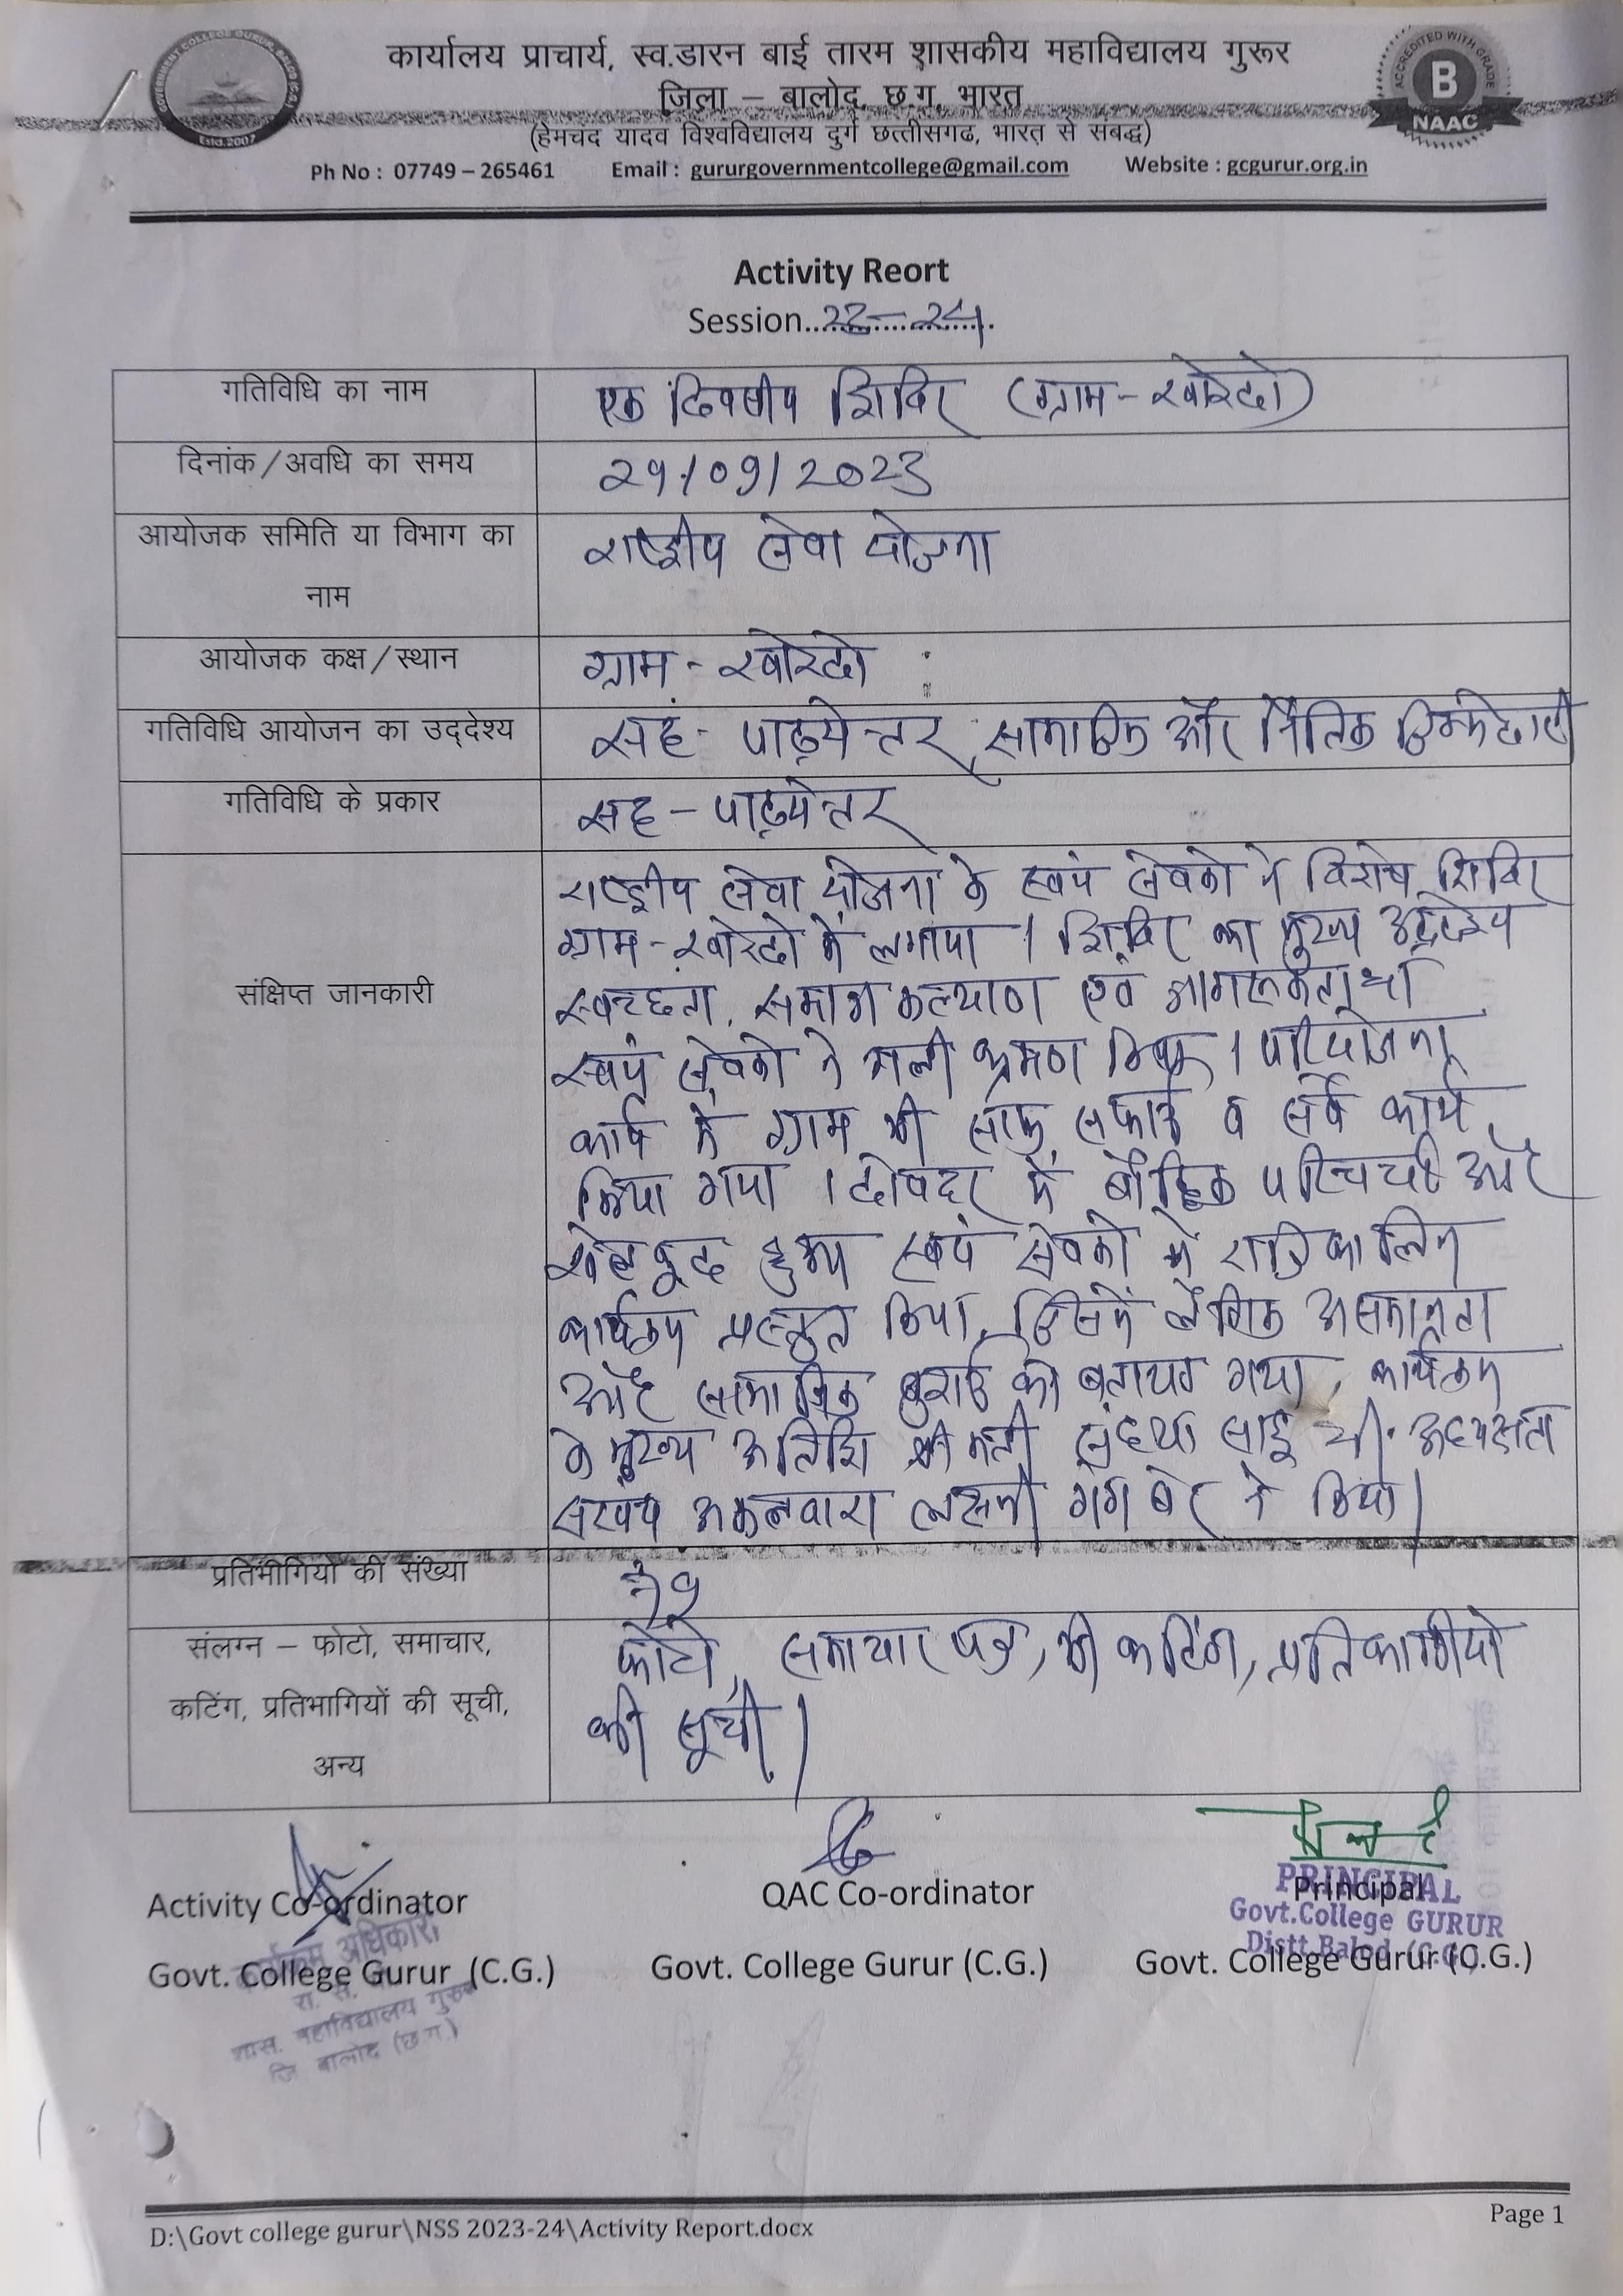 कार्यालय प्राचार्य, स्व.डारन बाई तारम शासकीय महाविद्यालय गुरूर
जिला – बालोद, छ.ग. भारत
(हेमचंद यादव विश्वविद्यालय दुर्ग छत्तीसगढ, भारत से संबद्ध)
Ph No : 07749 – 265461 Email : gururgovernmentcollege@gmail.com Website : gcgurur.org.in
GOVERNMENT COLLEGE GURUR
Estd. 2007
ACCREDITED WITH GRADE
B
NAAC
Activity Reort
Session..23-24.
गतिविधि का नाम
एक दिवसीय शिविर (ग्राम-
दिनांक/अवधि का समय
29/09/2023
आयोजक समिति या विभाग का
नाम
राष्ट्रीय सेवा योजना
आयोजक कक्ष/स्थान
ग्राम-
गतिविधि आयोजन का उद्देश्य
सह- पाठ्येत्तर, सामाजिक और नैतिक जिम्मेदारी
गतिविधि के प्रकार
सह-पाठ्येत्तर
संक्षिप्त जानकारी
राष्ट्रीय सेवा योजना के स्वयं सेवको ने विशेष शिविर
ग्राम- में लगाया। शिविर का मुख्य उद्देश्य
स्वच्छता, समाज कल्याण एवं जागरूकता था
स्वयं सेवको ने गली भ्रमण किया। परियोजना
कार्य मे ग्राम की साफ सफाई व सर्वे कार्य
किया गया। दोपहर में बौद्धिक परिचर्चा और
खेलकूद हुआ स्वयं सेवको ने रात्रिकालिन
कार्यक्रम प्रस्तुत किया, जिसमें लैंगिक असमानता
और सामाजिक बुराई को बताया गया, कार्यक्रम
के मुख्य अतिथि श्रीमती संध्या साहू थी. अध्यक्षता
सरपंच लक्ष्मी ने किया।
प्रतिभागियों की संख्या
संलग्न – फोटो, समाचार,
कटिंग, प्रतिभागियों की सूची,
अन्य
फोटो, समाचार पत्र, की कटिंग, प्रतिभागीयो
की सूची।
Activity Co-ordinator QAC Co-ordinator Principal
Govt. College Gurur (C.G.) Govt. College Gurur (C.G.) Govt. College Gurur (C.G.)
PRINCIPAL
Govt.College GURUR
Distt.Balod (C.G.)
कार्यक्रम अधिकारी,
रा. से.
शास. महाविद्यालय गुरूर
जि बालोद (छ.ग.)
D:\Govt college gurur\NSS 2023-24\Activity Report.docx
Page 1